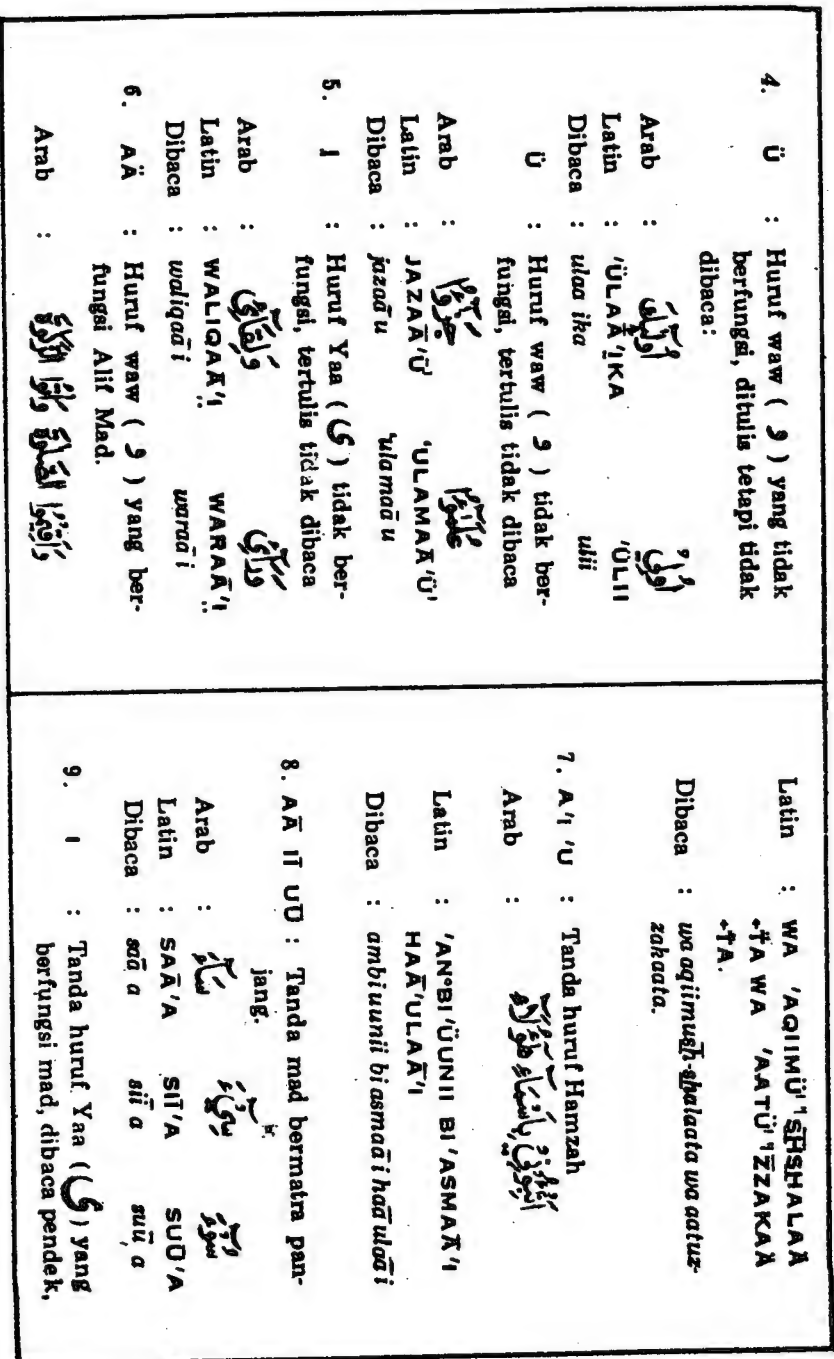 4. Ü : Huruf waw ( و ) yang tidak
berfungsi, ditulis tetapi tidak
dibaca:
Arab : أُولٰٓئِكَ أُولِي
Latin : 'ÜLAĀ'I̤KA 'ÜLII
Dibaca : ulaa ika ulii
Ü : Huruf waw ( و ) tidak ber-
fungsi, tertulis tidak dibaca
Arab : جَزَٰٓؤُا عُلَمَٰٓؤُا
Latin : JAZAĀ'Ü' 'ULAMAĀ'Ü'
Dibaca : jazaā u 'ulamaā u
5. I : Huruf Yaa ( ي ) tidak ber-
fungsi, tertulis tidak dibaca
Arab : وَلِقَآئِ وَرَآئِ
Latin : WALIQAĀ'I̤ WARAĀ'I̤
Dibaca : waliqaā i waraā i
6. AÄ : Huruf waw ( و ) yang ber-
fungsi Alif Mad.
Arab : وَاَقِيْمُوا الصَّلٰوةَ وَاٰتُوا الزَّكٰوةَ
Latin : WA 'AQIIMÜ''S̅H̅SHALAÄ
+T̈A WA 'AATÜ''Z̅ZAKAÄ
+T̈A.
Dibaca : wa aqiimus̅h̅-shalaata wa aatuz-
zakaata.
7. A 'I 'U : Tanda huruf Hamzah
Arab : اَنْۢبِـُٔوْنِيْ بِاَسْمَآءِ هٰٓؤُلَآءِ
Latin : 'AN°BI'ÜUNII BI'ASMAĀ'I
HAĀ'ULAĀ'I
Dibaca : ambiuunii bi asmaā i haā ulaā i
8. AĀ IĪ UŪ : Tanda mad bermatra pan-
jang.
Arab : سَآءَ سِيْٓءَ سُوْٓءَ
Latin : SAĀ'A SIĪ'A SUŪ'A
Dibaca : saā a siī a suū a
9. I : Tanda huruf Yaa ((ي) yang
berfungsi mad, dibaca pendek,